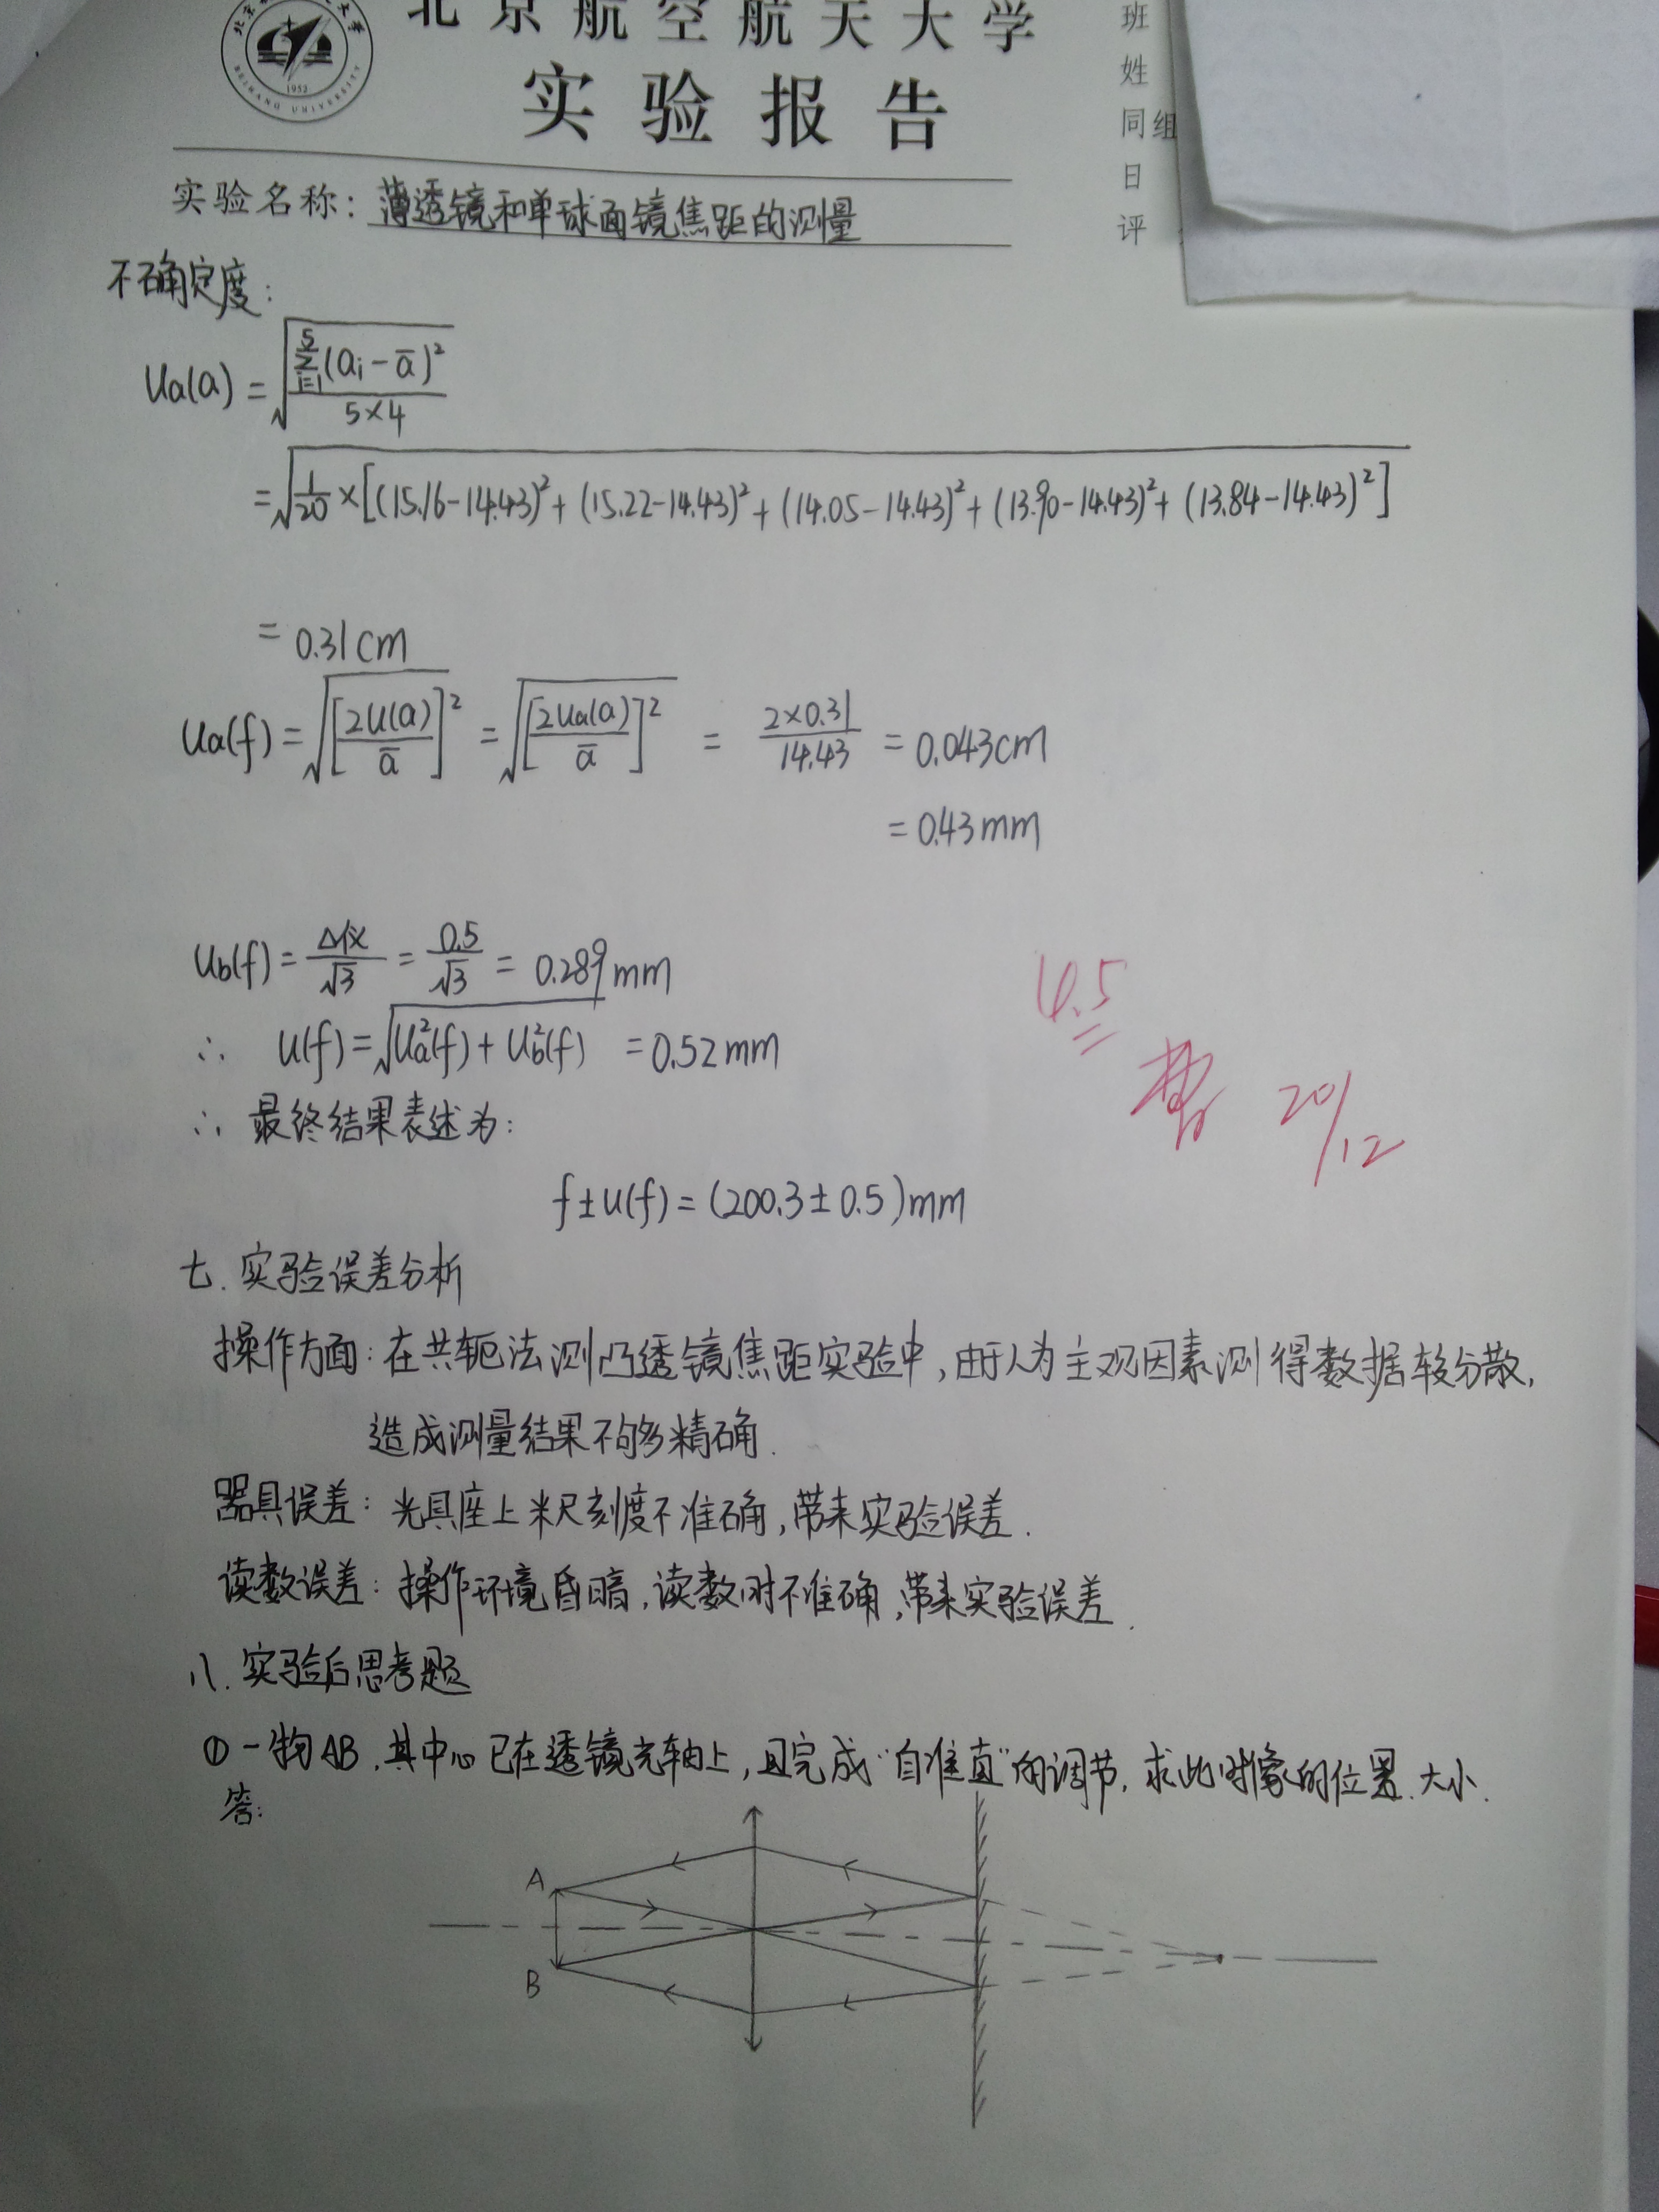 北京航空航天大学
实验报告
1952
BEIHANG UNIVERSITY
班
姓
同组
日
评
实验名称：薄透镜和单球面镜焦距的测量
不确定度：
Ua(a) = √(∑_{i=1}^{5}(ai - ā)² / 5×4)
= √(1/20 × [(15.16-14.43)² + (15.22-14.43)² + (14.05-14.43)² + (13.90-14.43)² + (13.84-14.43)²])
= 0.31cm
Ua(f) = √[2U(a)/ā]² = √[2Ua(a)/ā]² = 2×0.31/14.43 = 0.043cm
= 0.43mm
Ub(f) = Δ仪/√3 = 0.5/√3 = 0.289mm
∴ U(f) = √(Ua²(f) + Ub²(f)) = 0.52mm
∴ 最终结果表述为：
f±u(f) = (200.3±0.5)mm
4.5
20/12
七. 实验误差分析
操作方面：在共轭法测凸透镜焦距实验中，由于人为主观因素测得数据较分散，
造成测量结果不够精确.
器具误差：光具座上米尺刻度不准确，带来实验误差.
读数误差：操作环境昏暗，读数时不准确，带来实验误差.
八. 实验后思考题
① 一物AB，其中心已在透镜光轴上，且完成“自准直”的调节，求此时像的位置、大小.
答：
A
B